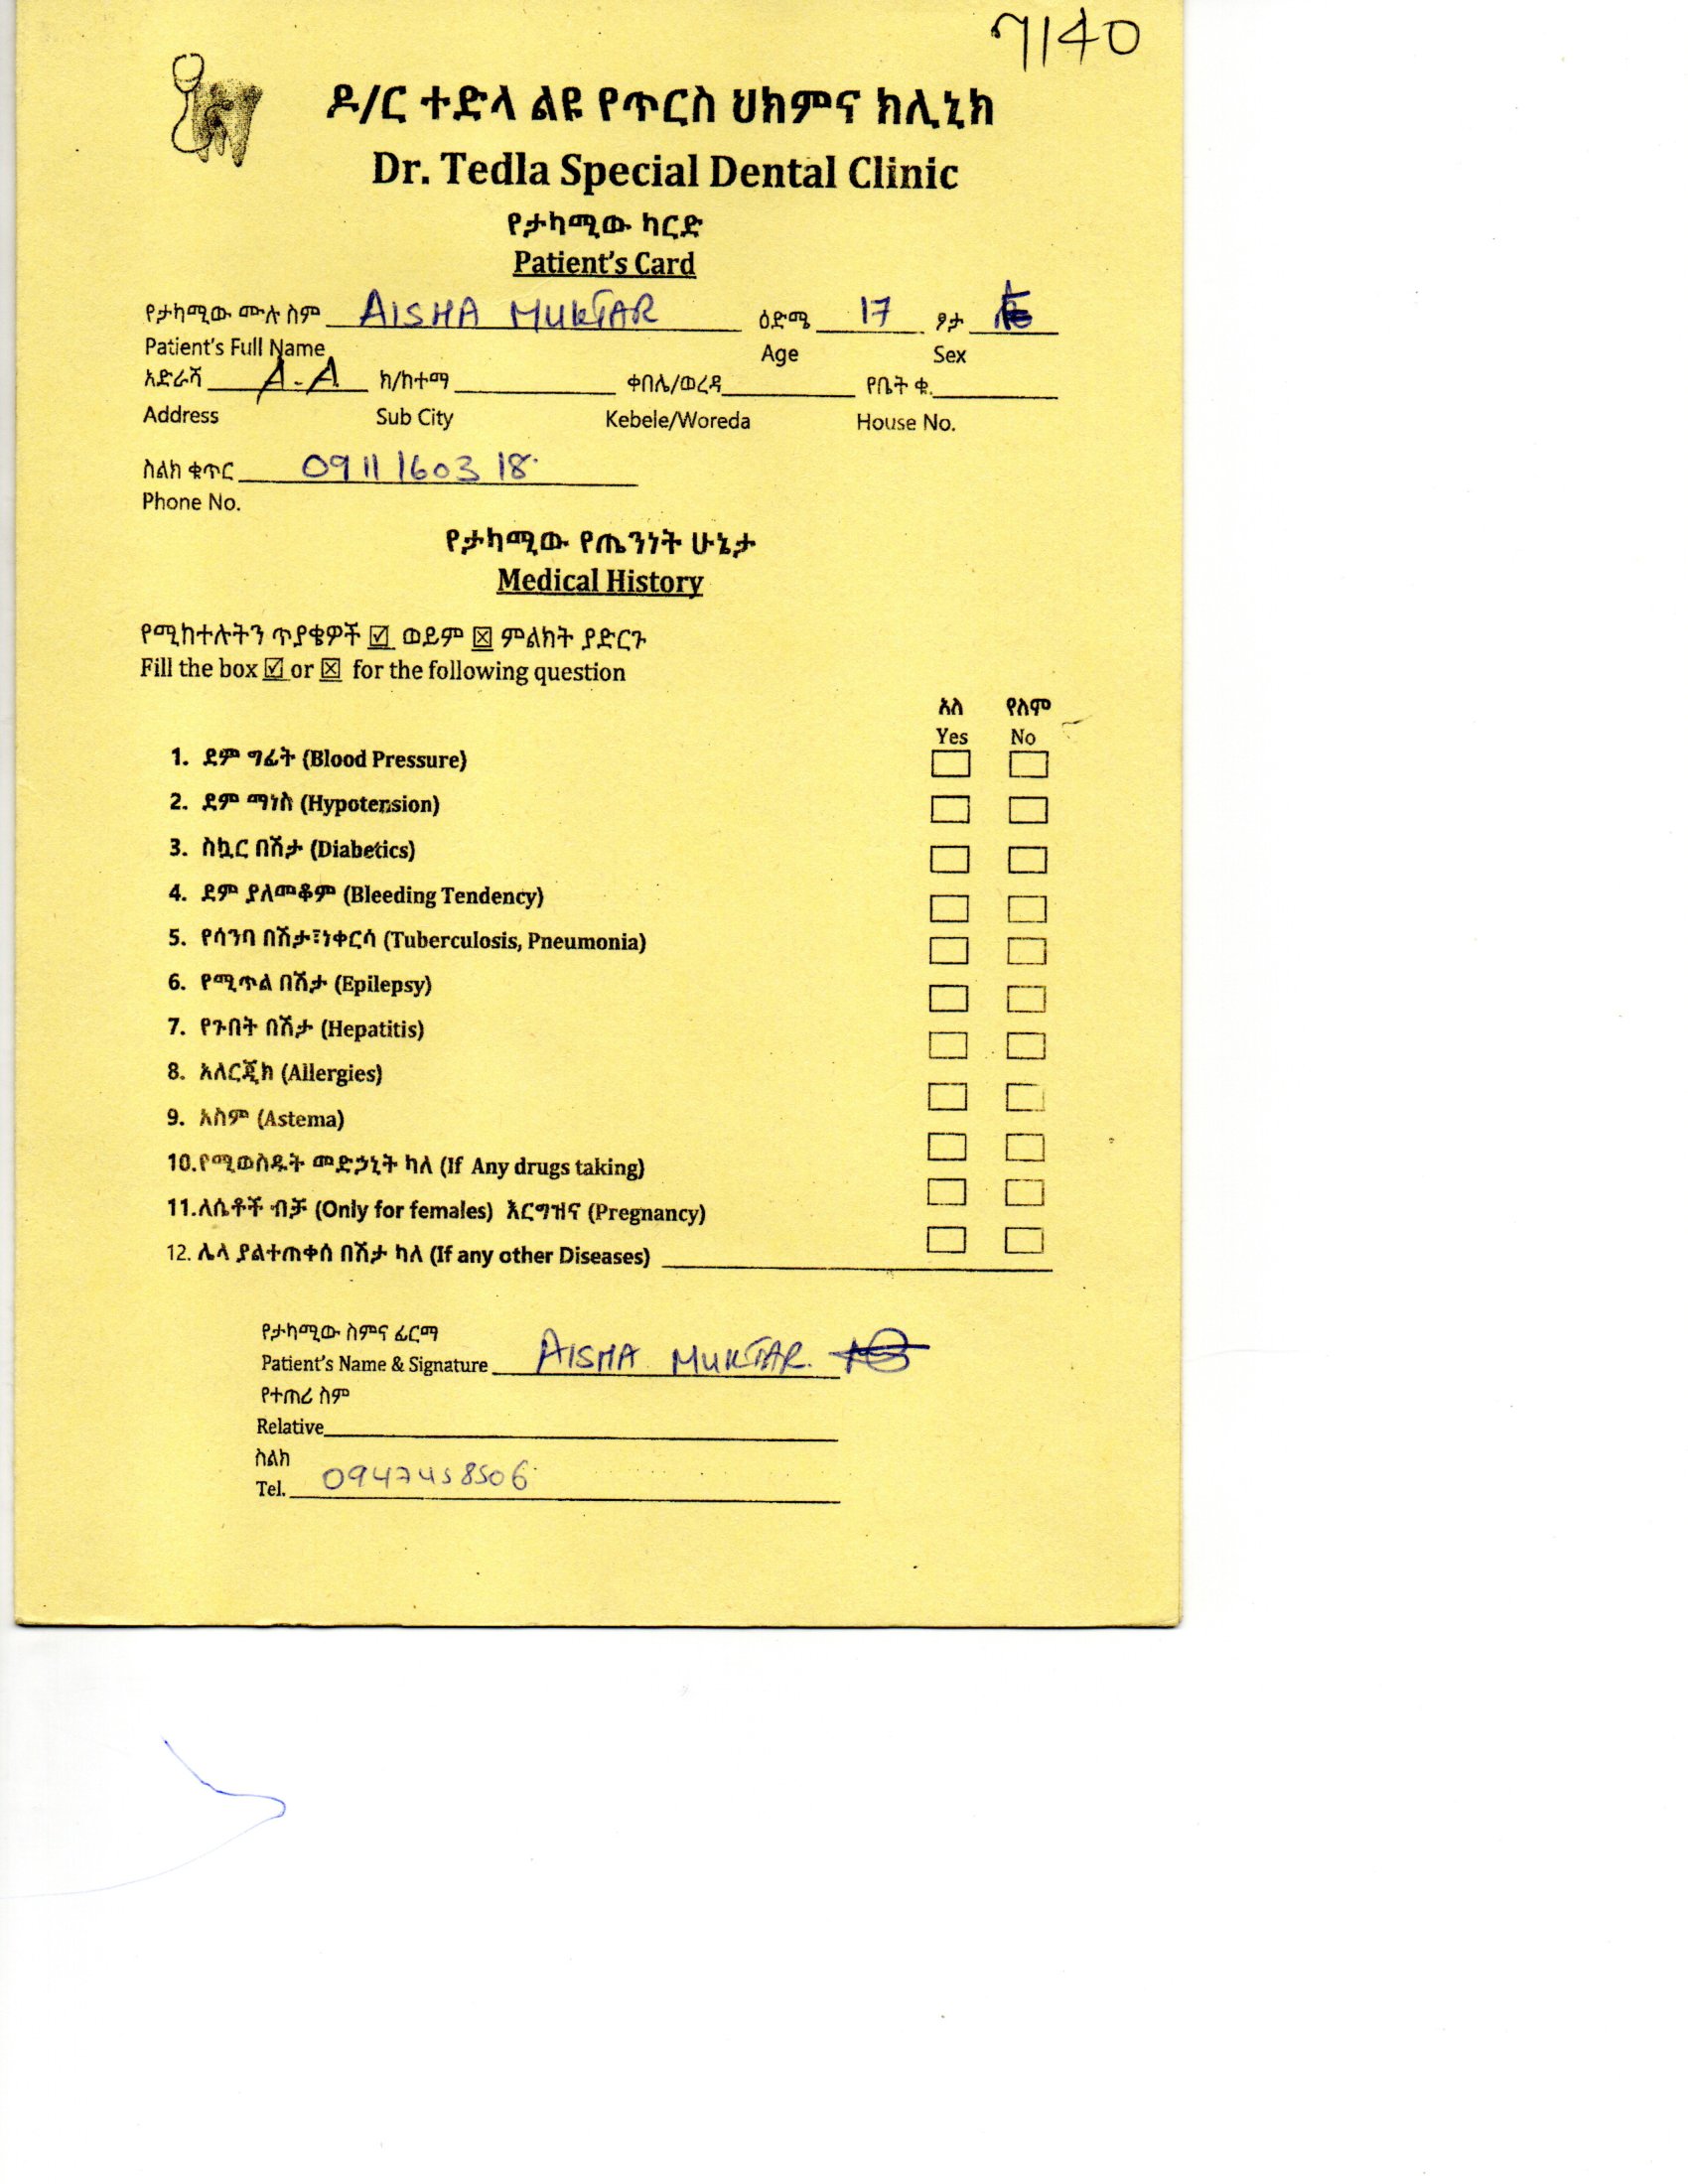 7140
ዶ/ር ተድላ ልዩ የጥርስ ህክምና ክሊኒክ
Dr. Tedla Special Dental Clinic
የታካሚው ካርድ
Patient's Card
የታካሚው ሙሉ ስም AISHA MUKTAR ዕድሜ 17 ፆታ
Patient's Full Name Age Sex
አድራሻ A.A ክ/ከተማ ቀበሌ/ወረዳ የቤት ቁ.
Address Sub City Kebele/Woreda House No.
ስልክ ቁጥር 0911160318
Phone No.
የታካሚው የጤንነት ሁኔታ
Medical History
የሚከተሉትን ጥያቄዎች ☑ ወይም ☒ ምልክት ያድርጉ
Fill the box ☑ or ☒ for the following question
አለ የለም
Yes No
1. ደም ግፊት (Blood Pressure)
2. ደም ማነስ (Hypotension)
3. ስኳር በሽታ (Diabetics)
4. ደም ያለመቆም (Bleeding Tendency)
5. የሳንባ በሽታ፣ነቀርሳ (Tuberculosis, Pneumonia)
6. የሚጥል በሽታ (Epilepsy)
7. የጉበት በሽታ (Hepatitis)
8. አለርጂክ (Allergies)
9. አስም (Astema)
10.የሚወስዱት መድኃኒት ካለ (If Any drugs taking)
11.ለሴቶች ብቻ (Only for females) እርግዝና (Pregnancy)
12. ሌላ ያልተጠቀሰ በሽታ ካለ (If any other Diseases)
የታካሚው ስምና ፊርማ
Patient's Name & Signature AISHA MUKTAR
የተጠሪ ስም
Relative
ስልክ
Tel. 0947458506